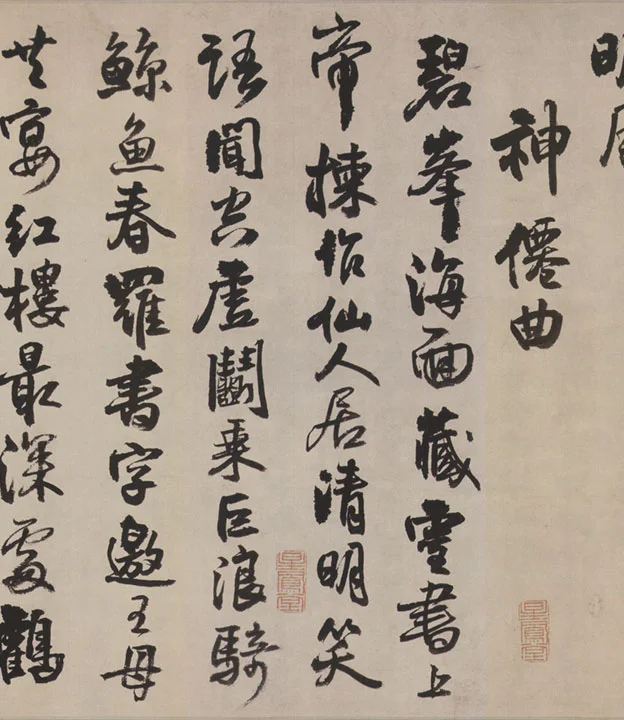 神僊曲
碧峯海面藏靈書上
帝揀作仙人居清明笑
語聞空虛鬭乘巨浪騎
鯨魚春羅書字邀王母
共宴紅樓最深處鶴